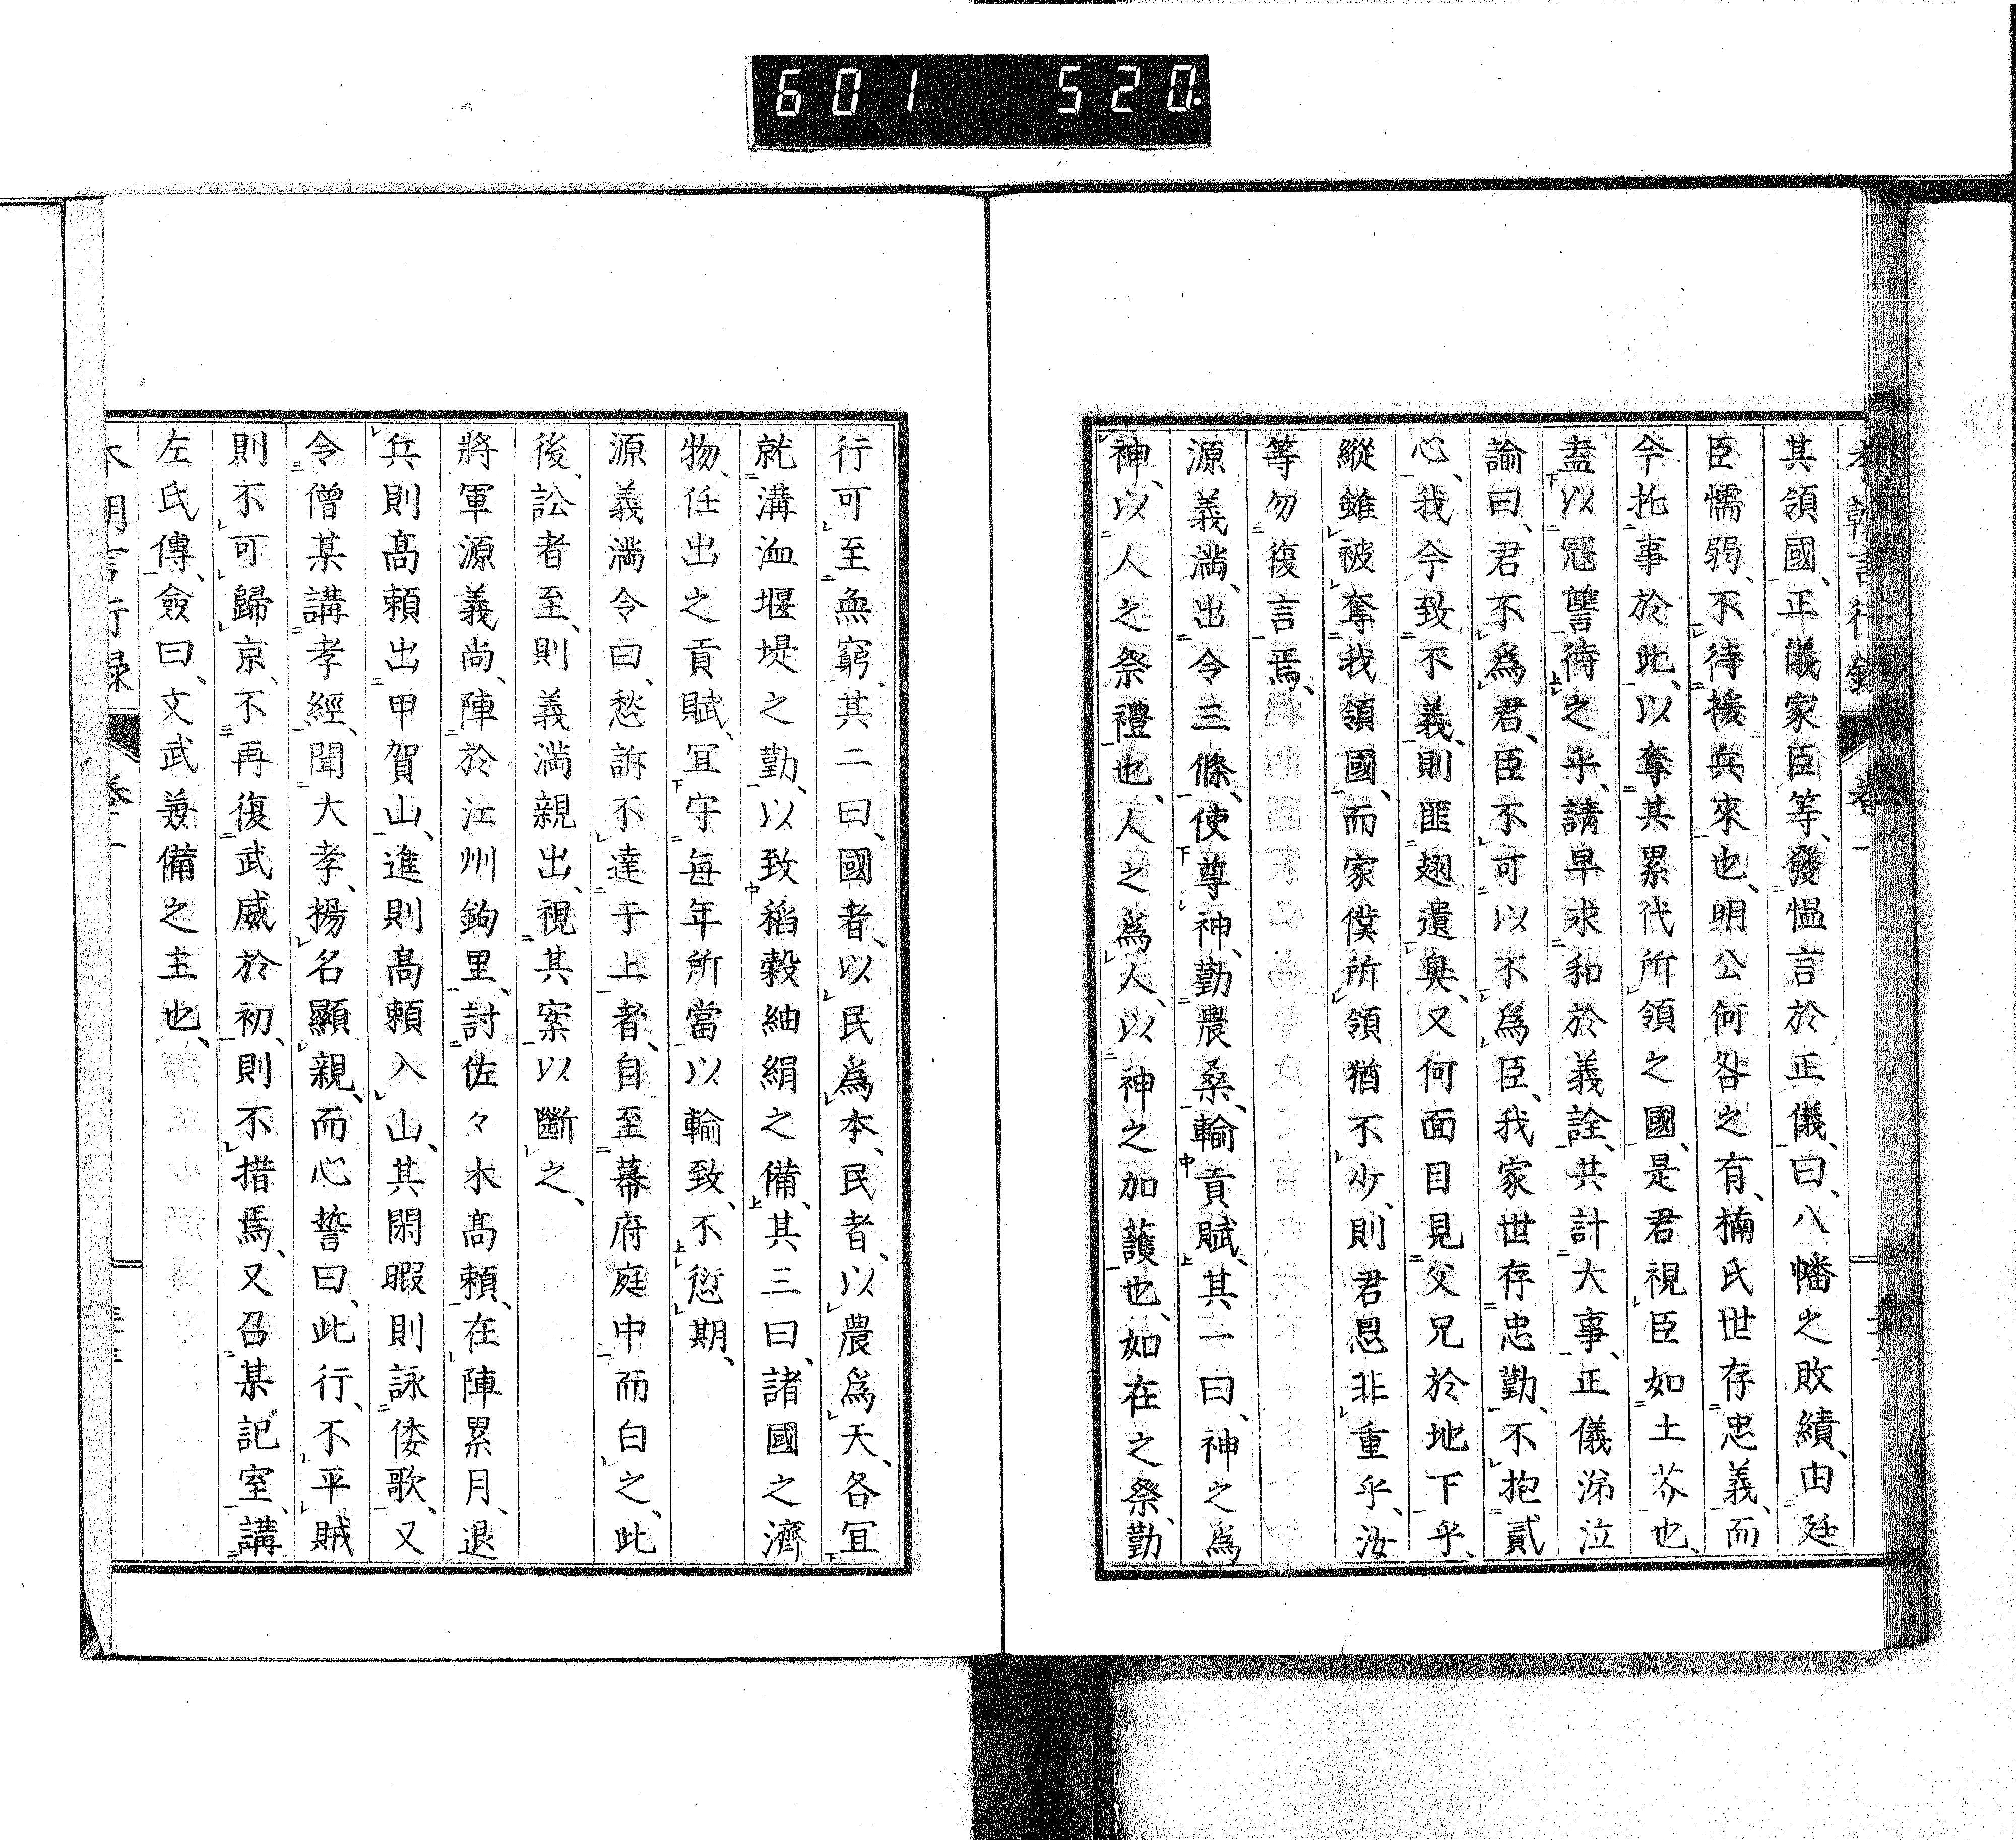 601 520.
其領國、正儀家臣等、發愠言於正儀、曰、八幡之敗績、由廷
臣懦弱、不待援兵來也、明公何咎之有、楠氏世存忠義、而
今托事於此、以奪其累代所領之國、是君視臣如土芥也、
盖以冦讐待之乎、請早求和於義詮、共計大事、正儀涕泣
諭曰、君不爲君、臣不可以不爲臣、我家世存忠勤、不抱貳
心、我今致不義、則匪翅遺臭、又何面目見父兄於地下乎、
縱雖被奪我領國、而家僕所領猶不少、則君恩非重乎、汝
等勿復言焉、
源義満、出令三條、使尊神、勤農桑、輸貢賦、其一曰、神之爲
神、以人之祭禮也、人之爲人、以神之加護也、如在之祭、勤
行可至無窮、其二曰、國者、以民爲本、民者、以農爲天、各宜
就溝洫堰堤之勤、以致稻穀紬絹之備、其三曰、諸國之濟
物、任出之貢賦、宜守每年所當以輸致、不愆期、
源義満令曰、愁訴不達于上者、自至幕府庭中而白之、此
後、訟者至、則義満親出、視其案以斷之、
將軍源義尚、陣於江州鉤里、討佐々木高頼、在陣累月、退
兵則髙頼出甲賀山、進則髙頼入山、其閑暇則詠倭歌、又
令僧某講孝經、聞大孝、揚名顯親、而心誓曰、此行、不平賊
則不可歸京、不再復武威於初、則不措焉、又召某記室、講
左氏傳、僉曰、文武兼備之主也、
本朝言行録 卷一